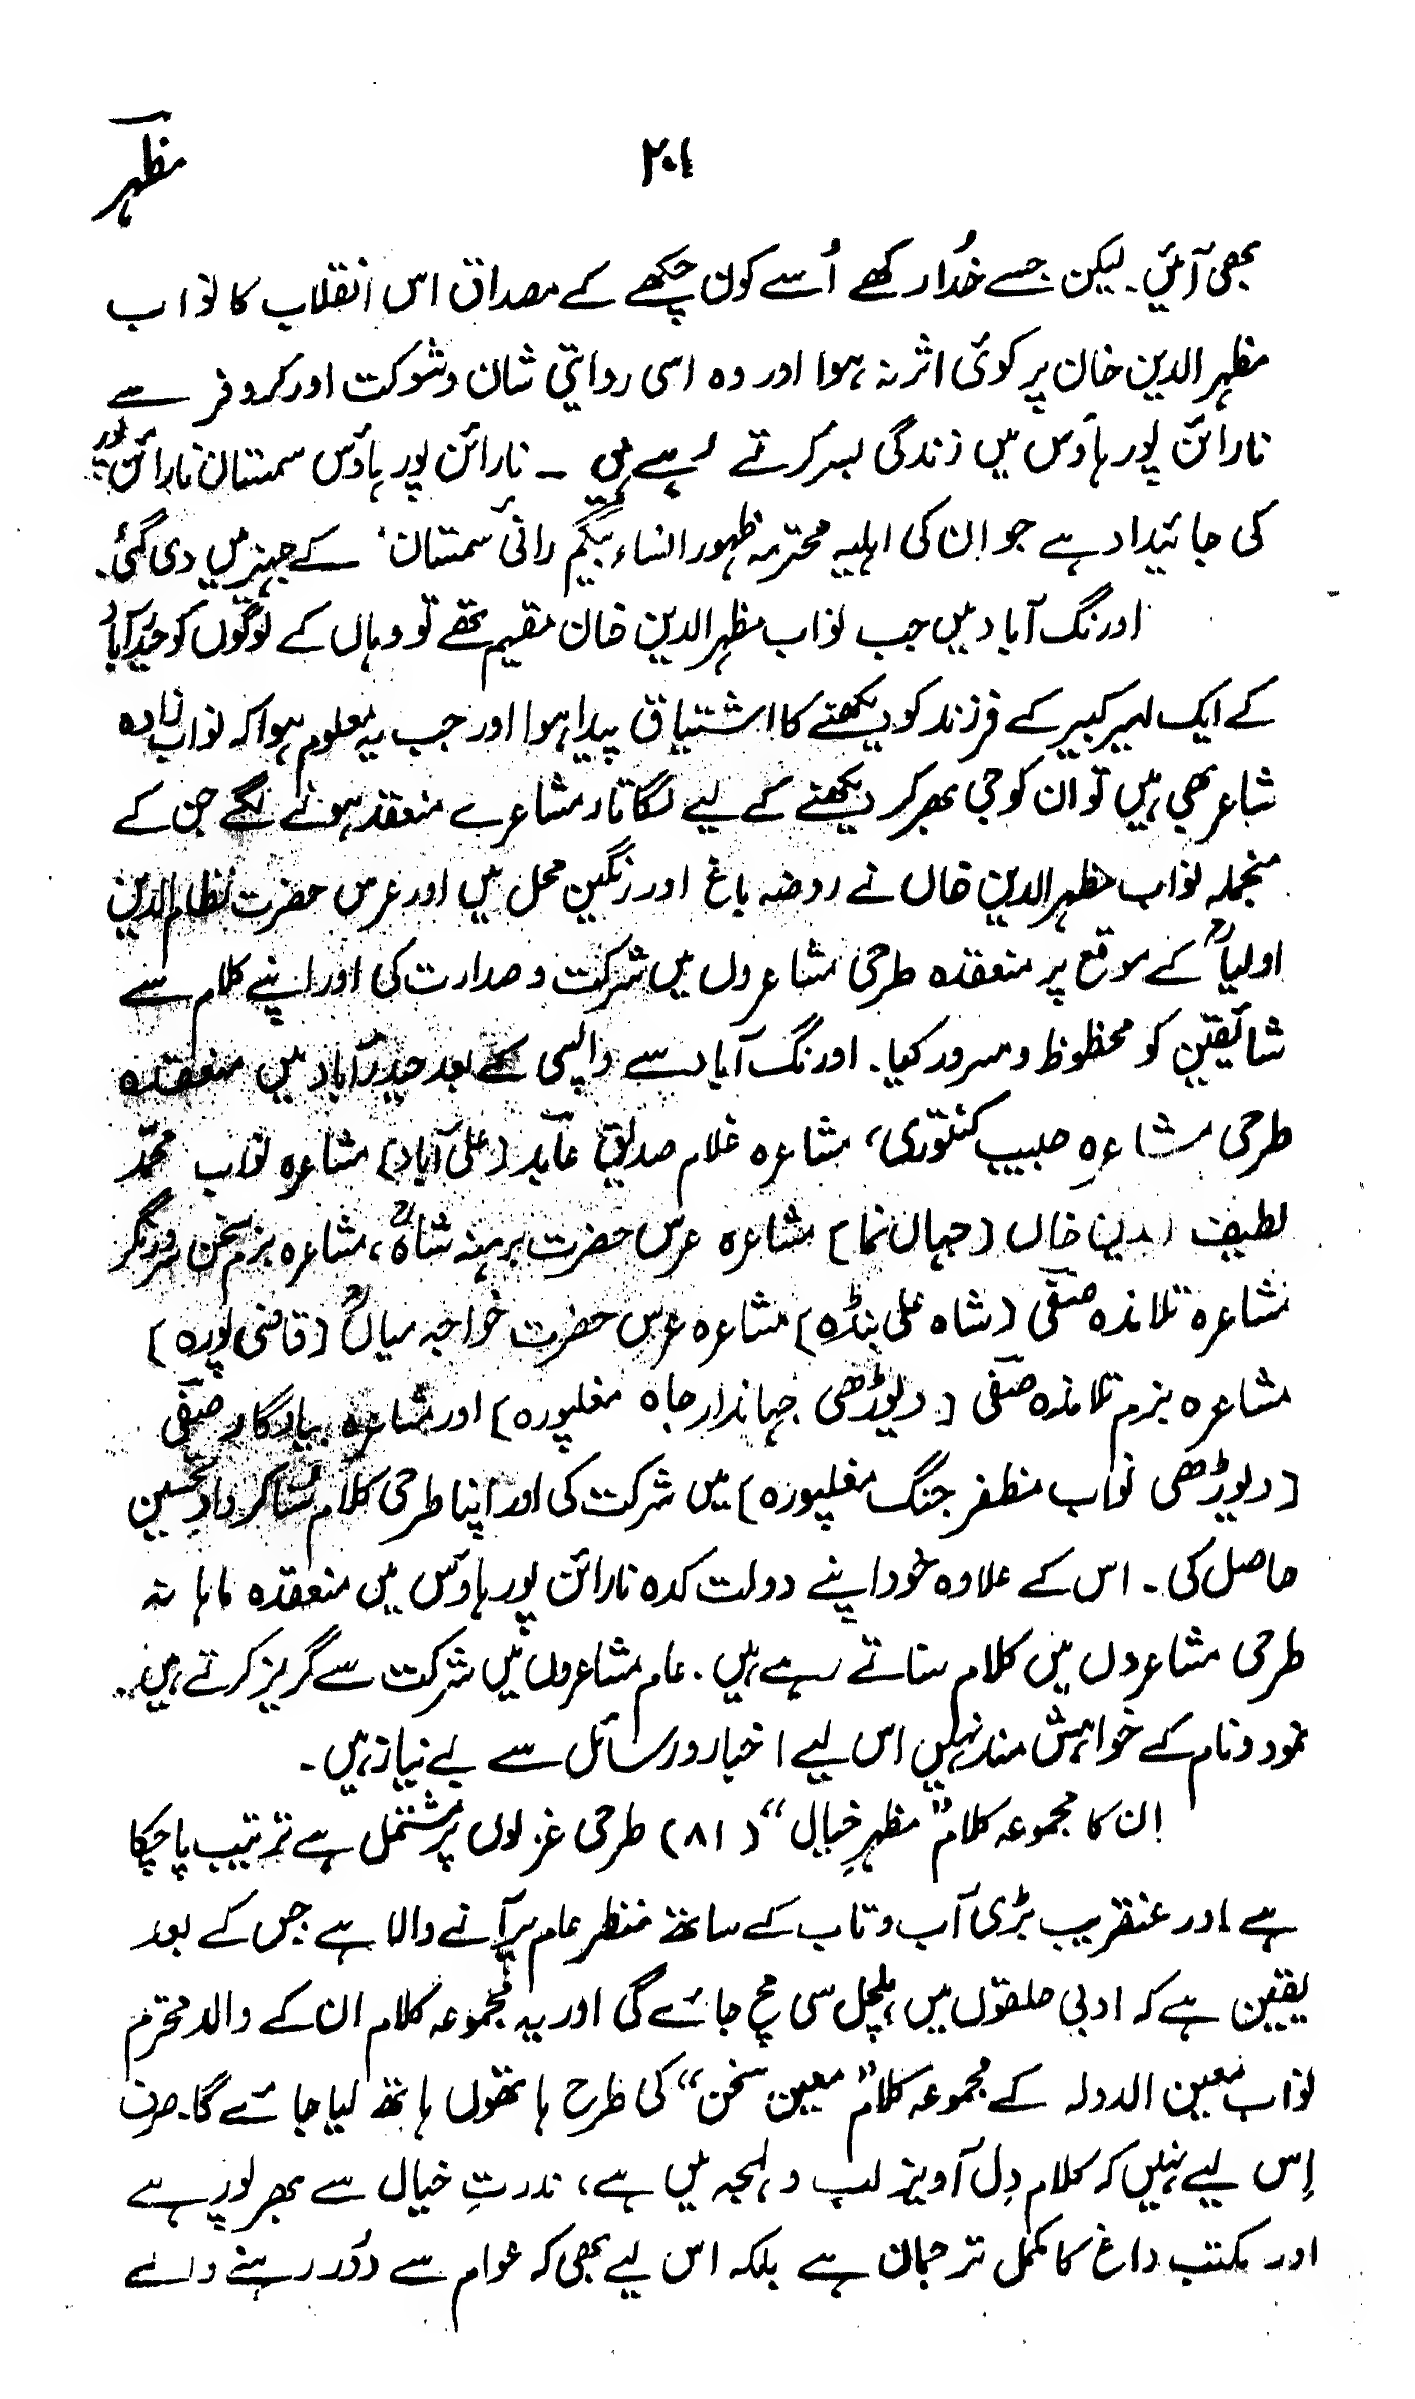 ۲۰۱
مظہر
بھی آئیں۔ لیکن جسے خُدا رکھے اُسے کون چکھے کے مصداق اس انقلاب کا نواب
مظہر الدین خان پر کوئی اثر نہ ہوا اور وہ اسی روایتی شان و شوکت اور کروفر سے
نارائن پور ہاؤس میں زندگی بسر کرتے رہے ہیں ۔ نارائن پور ہاؤس سمستان نارائن پور
کی جائیداد ہے جو ان کی اہلیہ محترمہ ظہور النساء بیگم رانی سمستان کے جہیز میں دی گئی۔
اورنگ آباد میں جب نواب مظہر الدین خان مقیم تھے تو وہاں کے لوگوں کو حیدرآباد
کے ایک امیر کبیر کے فرزند کو دیکھنے کا اشتیاق پیدا ہوا اور جب یہ معلوم ہوا کہ نواب زادہ
شاعر بھی ہیں تو ان کو جی بھر کر دیکھنے کے لیے لگاتار مشاعرے منعقد ہونے لگے جن کے
منجملہ نواب مظہر الدین خاں نے روضہ باغ اور رنگین محل میں اور عرس حضرت نظام الدین
اولیاؒ کے موقع پر منعقدہ طرحی مشاعروں میں شرکت و صدارت کی اور اپنے کلام سے
شائقین کو محظوظ و مسرور کیا۔ اورنگ آباد سے واپسی کے بعد حیدرآباد میں منعقدہ
طرحی مشاعرہ حبیب کنتوری، مشاعرہ غلام صدیق عابد (علی آباد) مشاعرہ نواب محمد
لطیف الدین خاں (جہاں نما) مشاعرہ عرس حضرت برہنہ شاہؒ، مشاعرہ بزم سخن سرورنگر
مشاعرہ تلامذہ صفی (شاہ علی بنڈہ) مشاعرہ عرس حضرت خواجہ میاںؒ (قاضی پورہ)
مشاعرہ بزم تلامذہ صفی (دیوڑھی جہاندار جاہ مغلپورہ) اور مشاعرہ بیادگار صفی
(دیوڑھی نواب مظفر جنگ مغلپورہ) میں شرکت کی اور اپنا طرحی کلام سُنا کر دادِ تحسین
حاصل کی ۔ اس کے علاوہ خود اپنے دولت کدہ نارائن پور ہاؤس میں منعقدہ ماہانہ
طرحی مشاعروں میں کلام سناتے رہے ہیں ۔ عام مشاعروں میں شرکت سے گریز کرتے ہیں۔
نمود و نام کے خواہش مند نہیں اس لیے اخبار و رسائل سے بے نیاز ہیں۔
اِن کا مجموعہ کلام ”مظہرِ خیال“ (۸۱) طرحی غزلوں پر مشتمل ہے ترتیب پا چکا
ہے اور عنقریب بڑی آب و تاب کے ساتھ منظر عام پر آنے والا ہے جس کے بعد
یقین ہے کہ ادبی حلقوں میں ہلچل سی مچ جائے گی اور یہ مجموعہ کلام ان کے والد محترم
نواب معین الدولہ کے مجموعہ کلام ”معین سخن“ کی طرح ہاتھوں ہاتھ لیا جائے گا۔ صرف
اِس لیے نہیں کہ کلام دِل آویز لب و لہجہ میں ہے، ندرتِ خیال سے بھر پور ہے
اور مکتب داغ کا مکمل ترجمان ہے بلکہ اس لیے بھی کہ عوام سے دُور رہنے والے